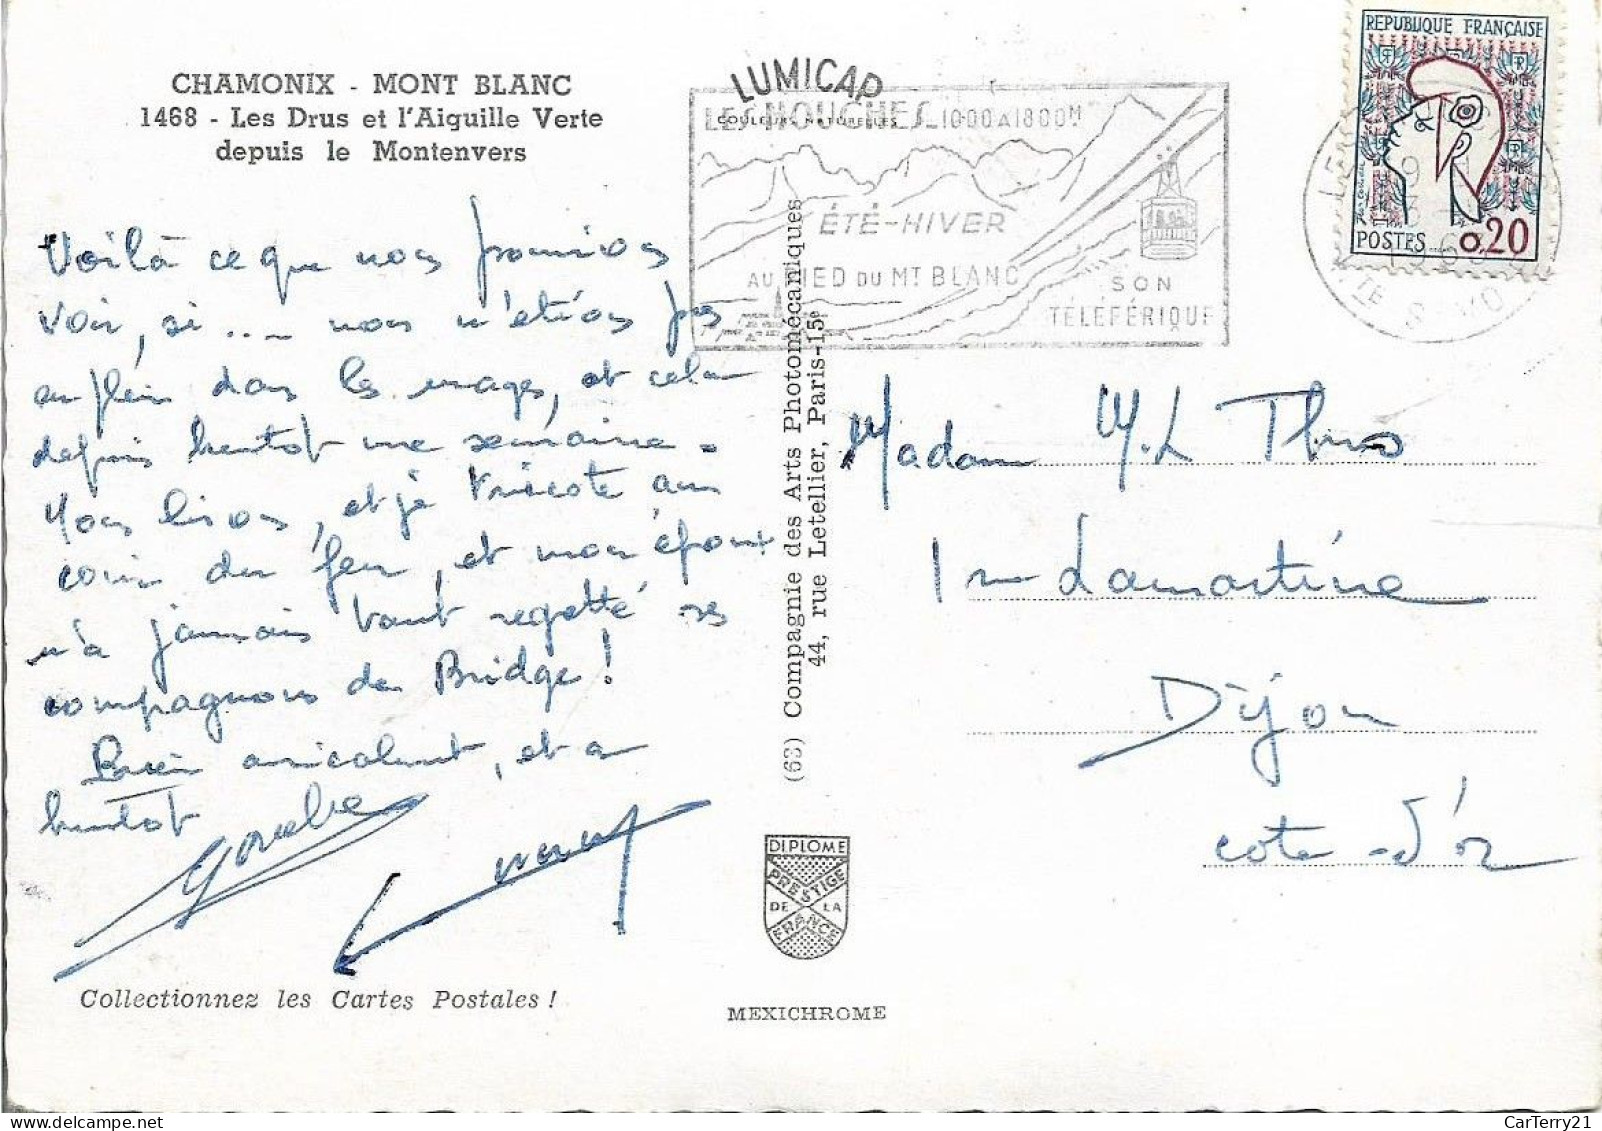 CHAMONIX - MONT BLANC
1468 - Les Drus et l'Aiguille Verte
depuis le Montenvers
Voilà ce que nous pourrions
voir, si .... nous n'étions pas
en plein dans les nuages, et cela
depuis bientot une semaine.
Nous lisons, et je tricote au
coin du feu, et mon époux
n'a jamais tant regretté ses
compagnons de Bridge!
Bien amicalement, et a
bientot
LUMICAP
COULEURS NATURELLES
LES HOUCHES_1000 A 1800M
ÉTÉ-HIVER
AU PIED DU MT BLANC
SON
TÉLÉFÉRIQUE
REPUBLIQUE FRANÇAISE
POSTES 0,20
(63) Compagnie des Arts Photomécaniques
44, rue Letellier, Paris-15e
Madame M.L
1 rue Lamartine
Dijon
cote-d'or
DIPLOME
PRESTIGE
DE LA
FRANCE
Collectionnez les Cartes Postales !
MEXICHROME
CarTerry21